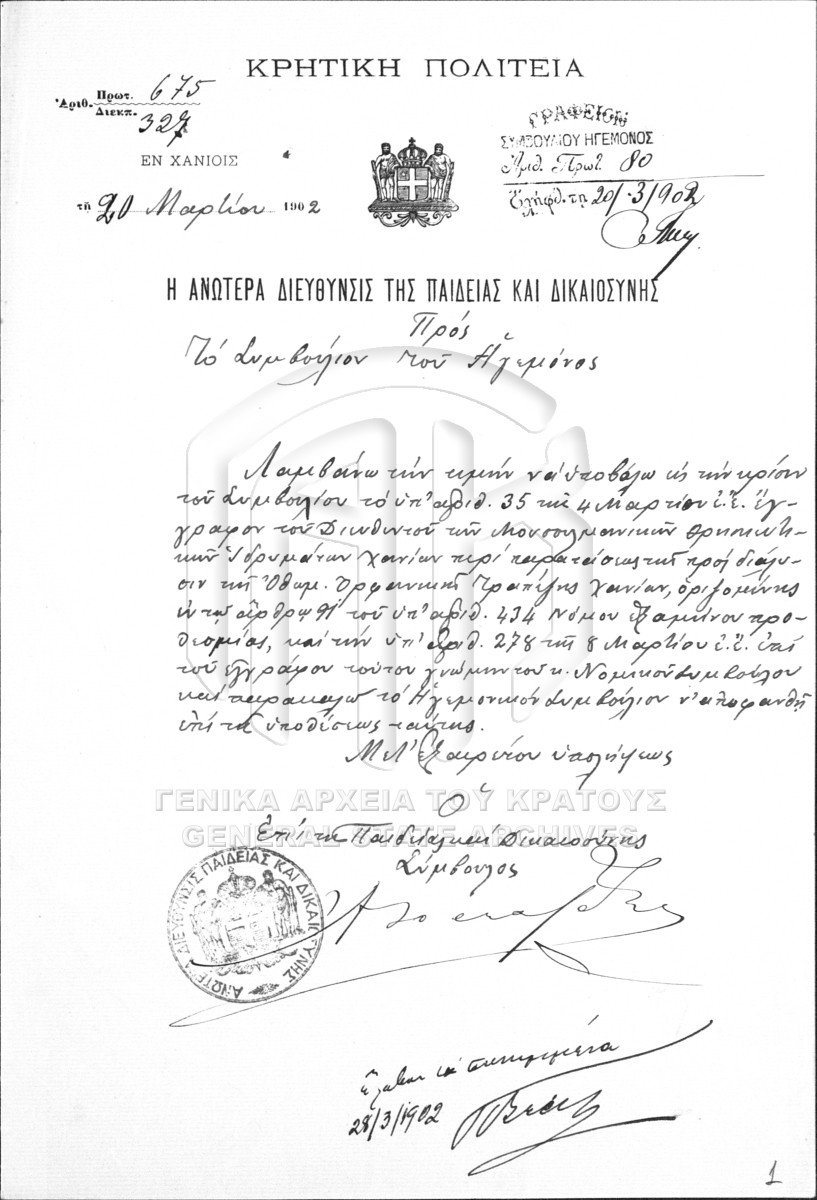 ΚΡΗΤΙΚΗ ΠΟΛΙΤΕΙΑ
Ἀριθ. Πρωτ. 675
Διεκπ. 327
ΕΝ ΧΑΝΙΟΙΣ
τῇ 20 Μαρτίου 1902
ΓΡΑΦΕΙΟΝ
ΣΥΜΒΟΥΛΙΟΥ ΗΓΕΜΟΝΟΣ
Ἀριθ. Πρωτ. 80
Ἐλήφθ. τῃ 20/-3/1902
Η ΑΝΩΤΕΡΑ ΔΙΕΥΘΥΝΣΙΣ ΤΗΣ ΠΑΙΔΕΙΑΣ ΚΑΙ ΔΙΚΑΙΟΣΥΝΗΣ
Πρός
Τό Συμβούλιον τοῦ Ἡγεμόνος
Λαμβάνω τήν τιμήν νά ὑποβάλω εἰς τήν κρίσιν
τοῦ Συμβουλίου τό ὑπ' ἀριθ. 35 τῆς 4 Μαρτίου ἐ.ἔ. ἔγ-
γραφον τοῦ Διευθυντοῦ τῶν Μουσουλμανικῶν Θρησκευτι-
κῶν Ἱδρυμάτων Χανίων περί παρατάσεως τῆς πρός διάλυ-
σιν τῆς Ὀθωμ. Ὀρφανικῆς Τραπέζης Χανίων, ὁριζομένης
ἐν τῷ ἄρθρῳ 91 τοῦ ὑπ' ἀριθ. 434 Νόμου ἑξαμήνου προ-
θεσμίας, καί τήν ὑπ' ἀριθ. 278 τῆς 8 Μαρτίου ἐ.ἔ. ἐπί
τοῦ ἐγγράφου τούτου γνώμην τοῦ κ. Νομικοῦ Συμβούλου
καί παρακαλῶ τό Ἡγεμονικόν Συμβούλιον ν' ἀποφανθῇ
ἐπί τῆς ὑποθέσεως ταύτης.
Μετ' ἐξαιρέτου ὑπολήψεως
Ὁ
Ἐπί τῆς Παιδείας καί Δικαιοσύνης
Σύμβουλος
ΑΝΩΤΕΡΑ ΔΙΕΥΘΥΝΣΙΣ ΠΑΙΔΕΙΑΣ ΚΑΙ ΔΙΚΑΙΟΣΥΝΗΣ
ΓΕΝΙΚΑ ΑΡΧΕΙΑ ΤΟΥ ΚΡΑΤΟΥΣ
GENERAL STATE ARCHIVES
ἔλαβον τά συνημμένα
28/3/1902
1